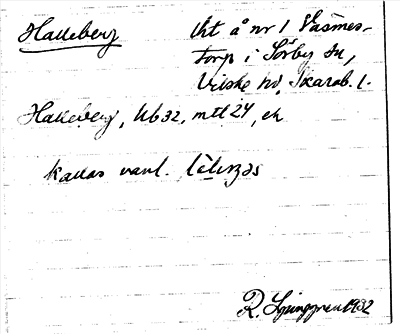 Halleberg lht å nr 1 Väsmes-
torp i Sörby sn,
Vilske hd, Skarab. l.
Halleberg, Ub 32, mtl 24, ek
kallas vanl.
R. Ljunggren 1932